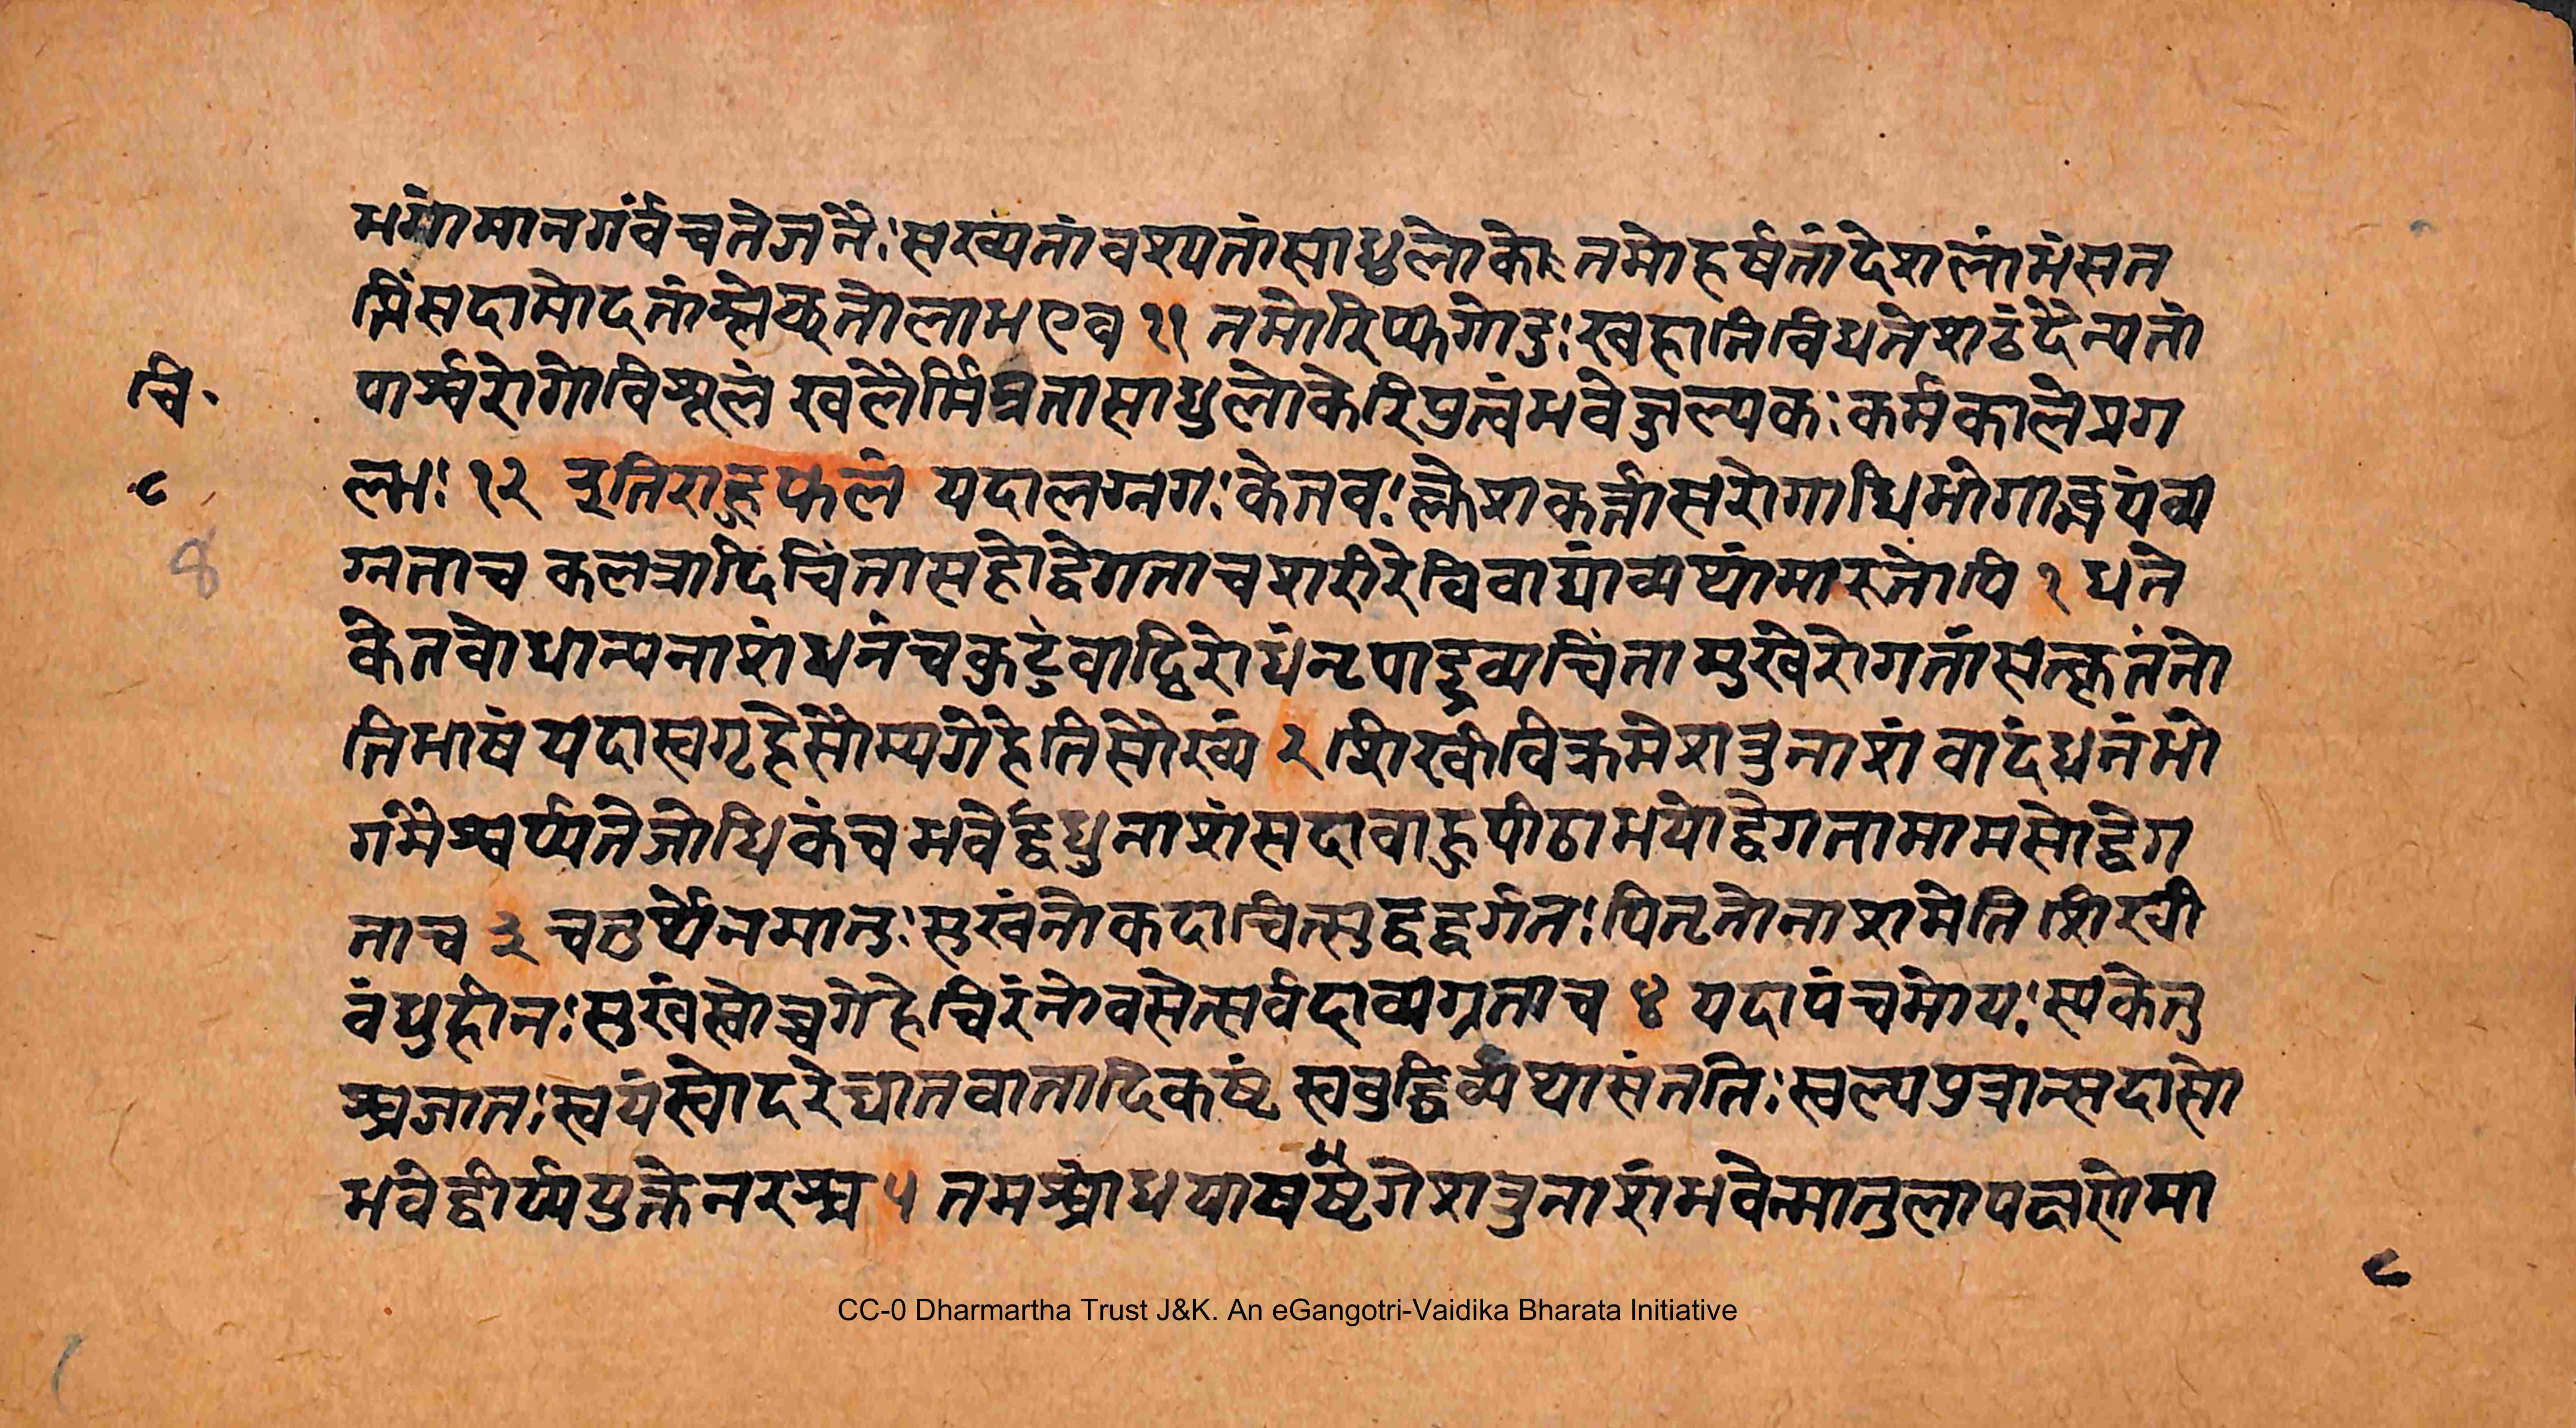 भग्नोमानगर्वंचतेजनैः सख्यतांवश्यतांसाधुलोकोः तमोहर्षतांदेशलांभंसत
मिंसदामोदतांम्लेछतोलाभएव ११ तमोरिप्फगोदुःखहानिविधनेशठंदैन्यतां
पार्श्वरोगोविशूलं खलैर्मित्रतासाधुलोकेरिपुत्वंभवेज्जल्पकः कर्मकालेप्रग
वि॰
ल्भः १२ इतिराहुफलं यदालग्नगः केतवः क्लेशकर्त्तासरोगाधिभोगाद्भयंव्य
८
ग्नताच कलत्रादिचिंतासहोद्वेगताचशरीरेविवाद्यांव्यथांमारुतोपि १ धने
8
केतवोधान्यनाशंधनंचकुटुंवाद्विरोधंनृपाद्द्रव्यचिंता मुखेरोगतांसत्कृतंनो
तिभाषं यदास्वगृहेसौम्यगेहेतिसौख्यं २ शिखीविक्रमेशत्रुनाशं वादंधनंभो
गमैश्वर्य्यतेजोधिकंच भवेद्वंधुनाशंसदावाहुपीठाभयोद्वेगतामामसोद्वेग
ताच ३ चतुर्थेनमातुः सुखंनोकदाचित्सुद्वद्वर्गतः पितृतोनाशमेति शिखी
वंधुहीनः सुखंस्वोच्चगेहे चिरंनोवसेत्सर्वदाव्यग्रताच ४ यदापंचमोयः स्यकेतु
श्चजातः स्वयंस्वोदरेघातवातादिकष्टं स्वबुद्धिव्यथासंततिः स्वल्पपुत्रान्सदासो
भवेद्वीर्य्ययुक्तेनरश्च ५ तमश्चोधयाषष्टेगेशत्रुनाशंभवेन्मातुलापक्षगेमा
८
CC-0 Dharmartha Trust J&K. An eGangotri-Vaidika Bharata Initiative